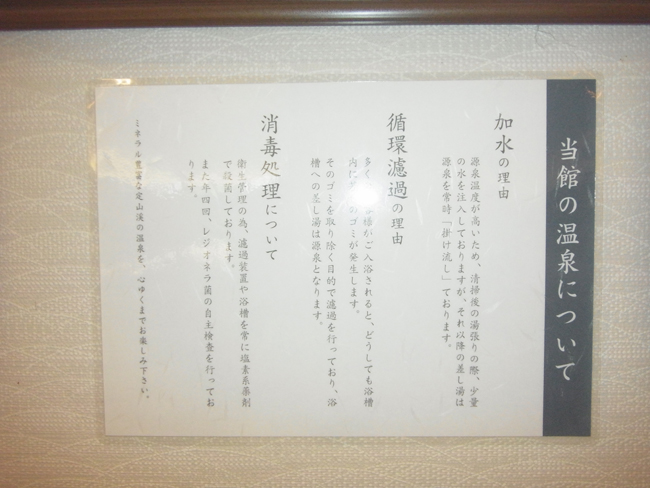 当館の温泉について
加水の理由
源泉温度が高いため、清掃後の湯張りの際、少量
の水を注入しておりますが、それ以降の差し湯は
源泉を常時「掛け流し」ております。
循環濾過の理由
多く 様がご入浴されると、どうしても浴槽
内に のゴミが発生します。
そのゴミを取り除く目的で濾過を行っており、浴
槽への差し湯は源泉となります。
消毒処理について
衛生管理の為、濾過装置や浴槽を常に塩素系薬剤
で殺菌しております。
また年四回、レジオネラ菌の自主検査を行ってお
ります。
ミネラル豊富な定山渓の温泉を、心ゆくまでお楽しみ下さい。